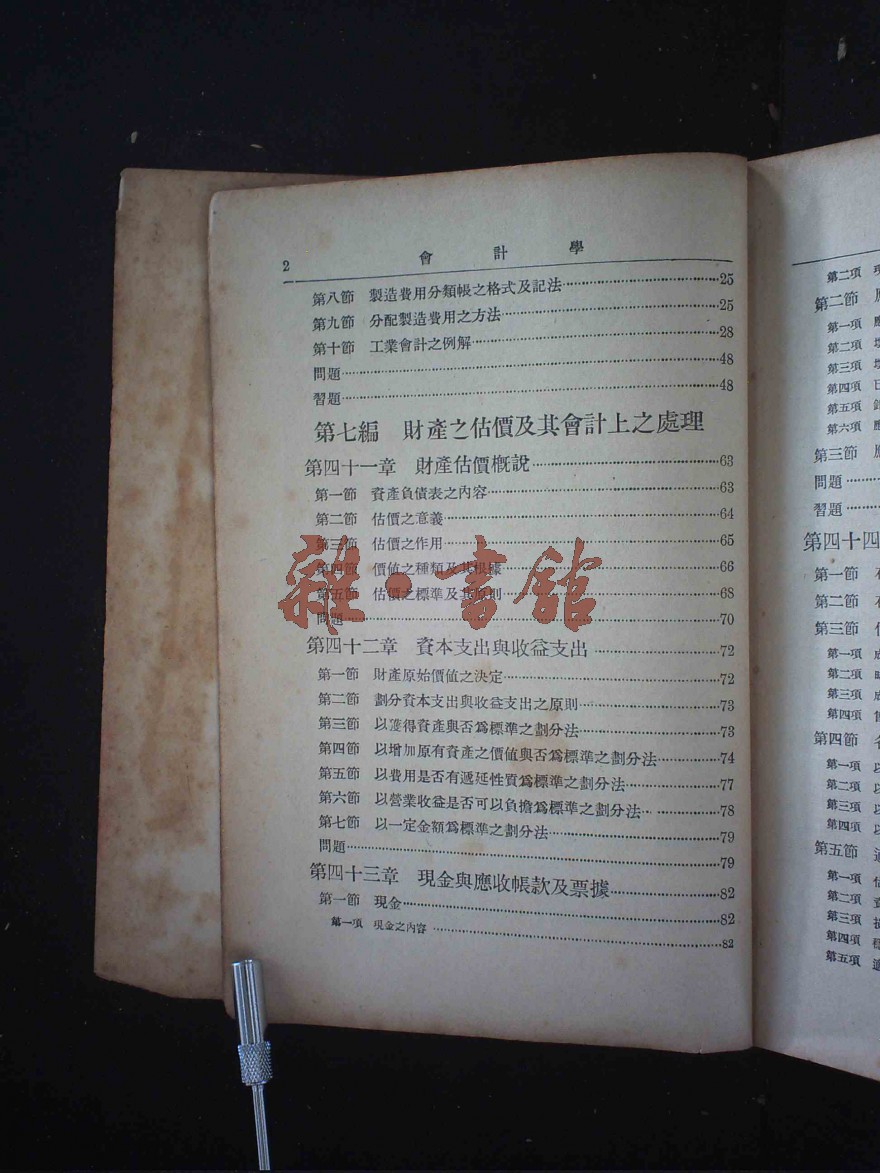 2 會計學
第八節 製造費用分類帳之格式及記法……25
第九節 分配製造費用之方法……25
第十節 工業會計之例解……28
問題……48
習題……48
第七編 財產之估價及其會計上之處理
第四十一章 財產估價概說……63
第一節 資產負債表之內容……63
第二節 估價之意義……64
第三節 估價之作用……65
第四節 價值之種類及其根據……66
第五節 估價之標準及其原則……68
問題……70
第四十二章 資本支出與收益支出……72
第一節 財產原始價值之決定……72
第二節 劃分資本支出與收益支出之原則……73
第三節 以獲得資產與否為標準之劃分法……73
第四節 以增加原有資產之價值與否為標準之劃分法……74
第五節 以費用是否有遞延性質為標準之劃分法……77
第六節 以營業收益是否可以負擔為標準之劃分法……78
第七節 以一定金額為標準之劃分法……79
問題……79
第四十三章 現金與應收帳款及票據……82
第一節 現金……82
第一項 現金之內容……82
雜·書館
第二項
第二節
第一項
第二項
第三項
第四項
第五項
第六項
第三節
問題……
習題……
第四十四
第一節
第二節
第三節
第一項
第二項
第三項
第四項
第四節
第一項
第二項
第三項
第四項
第五節
第一項
第二項
第三項
第四項
第五項